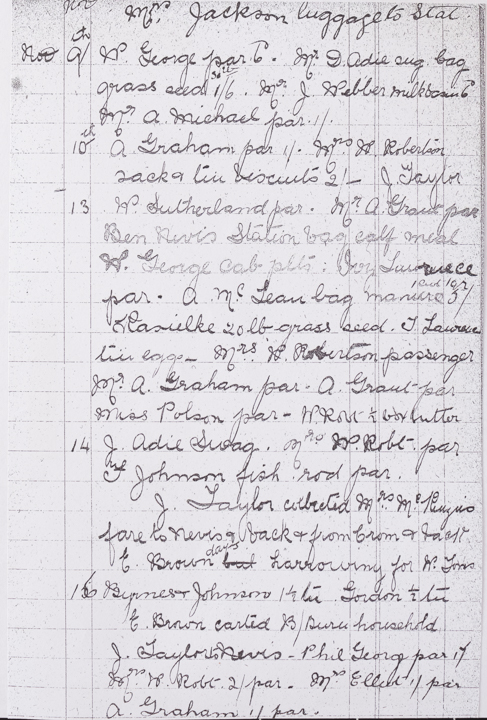 Nov
Mrs. Jackson luggage to Stat.
Nov 9th W George par 6. Mr D. Adie sug. bag
grass seed 1/6. Mr. J. Webber milkbasin 6
Mr A. Michael par 1/.
10th A Graham par 1/. Mrs W. Robertson
sack & tin biscuits 2/- J. Taylor
13 W. Sutherland par. Mr. A. Grant par
Ben Nevis Station bag calf meal
W. George cab plts. Ivy Lawrence
par. A. McLean bag manure 3/
20 lb grass seed. T. Lawrence
tin eggs - Mrs W. Robertson passenger
Mr. A. Graham par. A. Grant par
Miss Polson par - W Robt ½ box butter
14 J. Adie Swag. Mrs W. Robt. par
Johnson fish rod par.
J. Taylor collected Mrs.
fare to Nevis & back & from Crom & back
E. Brown days harrowing for W.
15 Byrnes & Johnson 1½ tu Gordon ½ tu
E. Brown carted household
J. Taylor Nevis - Phil Georg par 1/
Mrs W. Robt. 2/ par. Mrs Elliot 1/ par
A. Graham 1/ par.